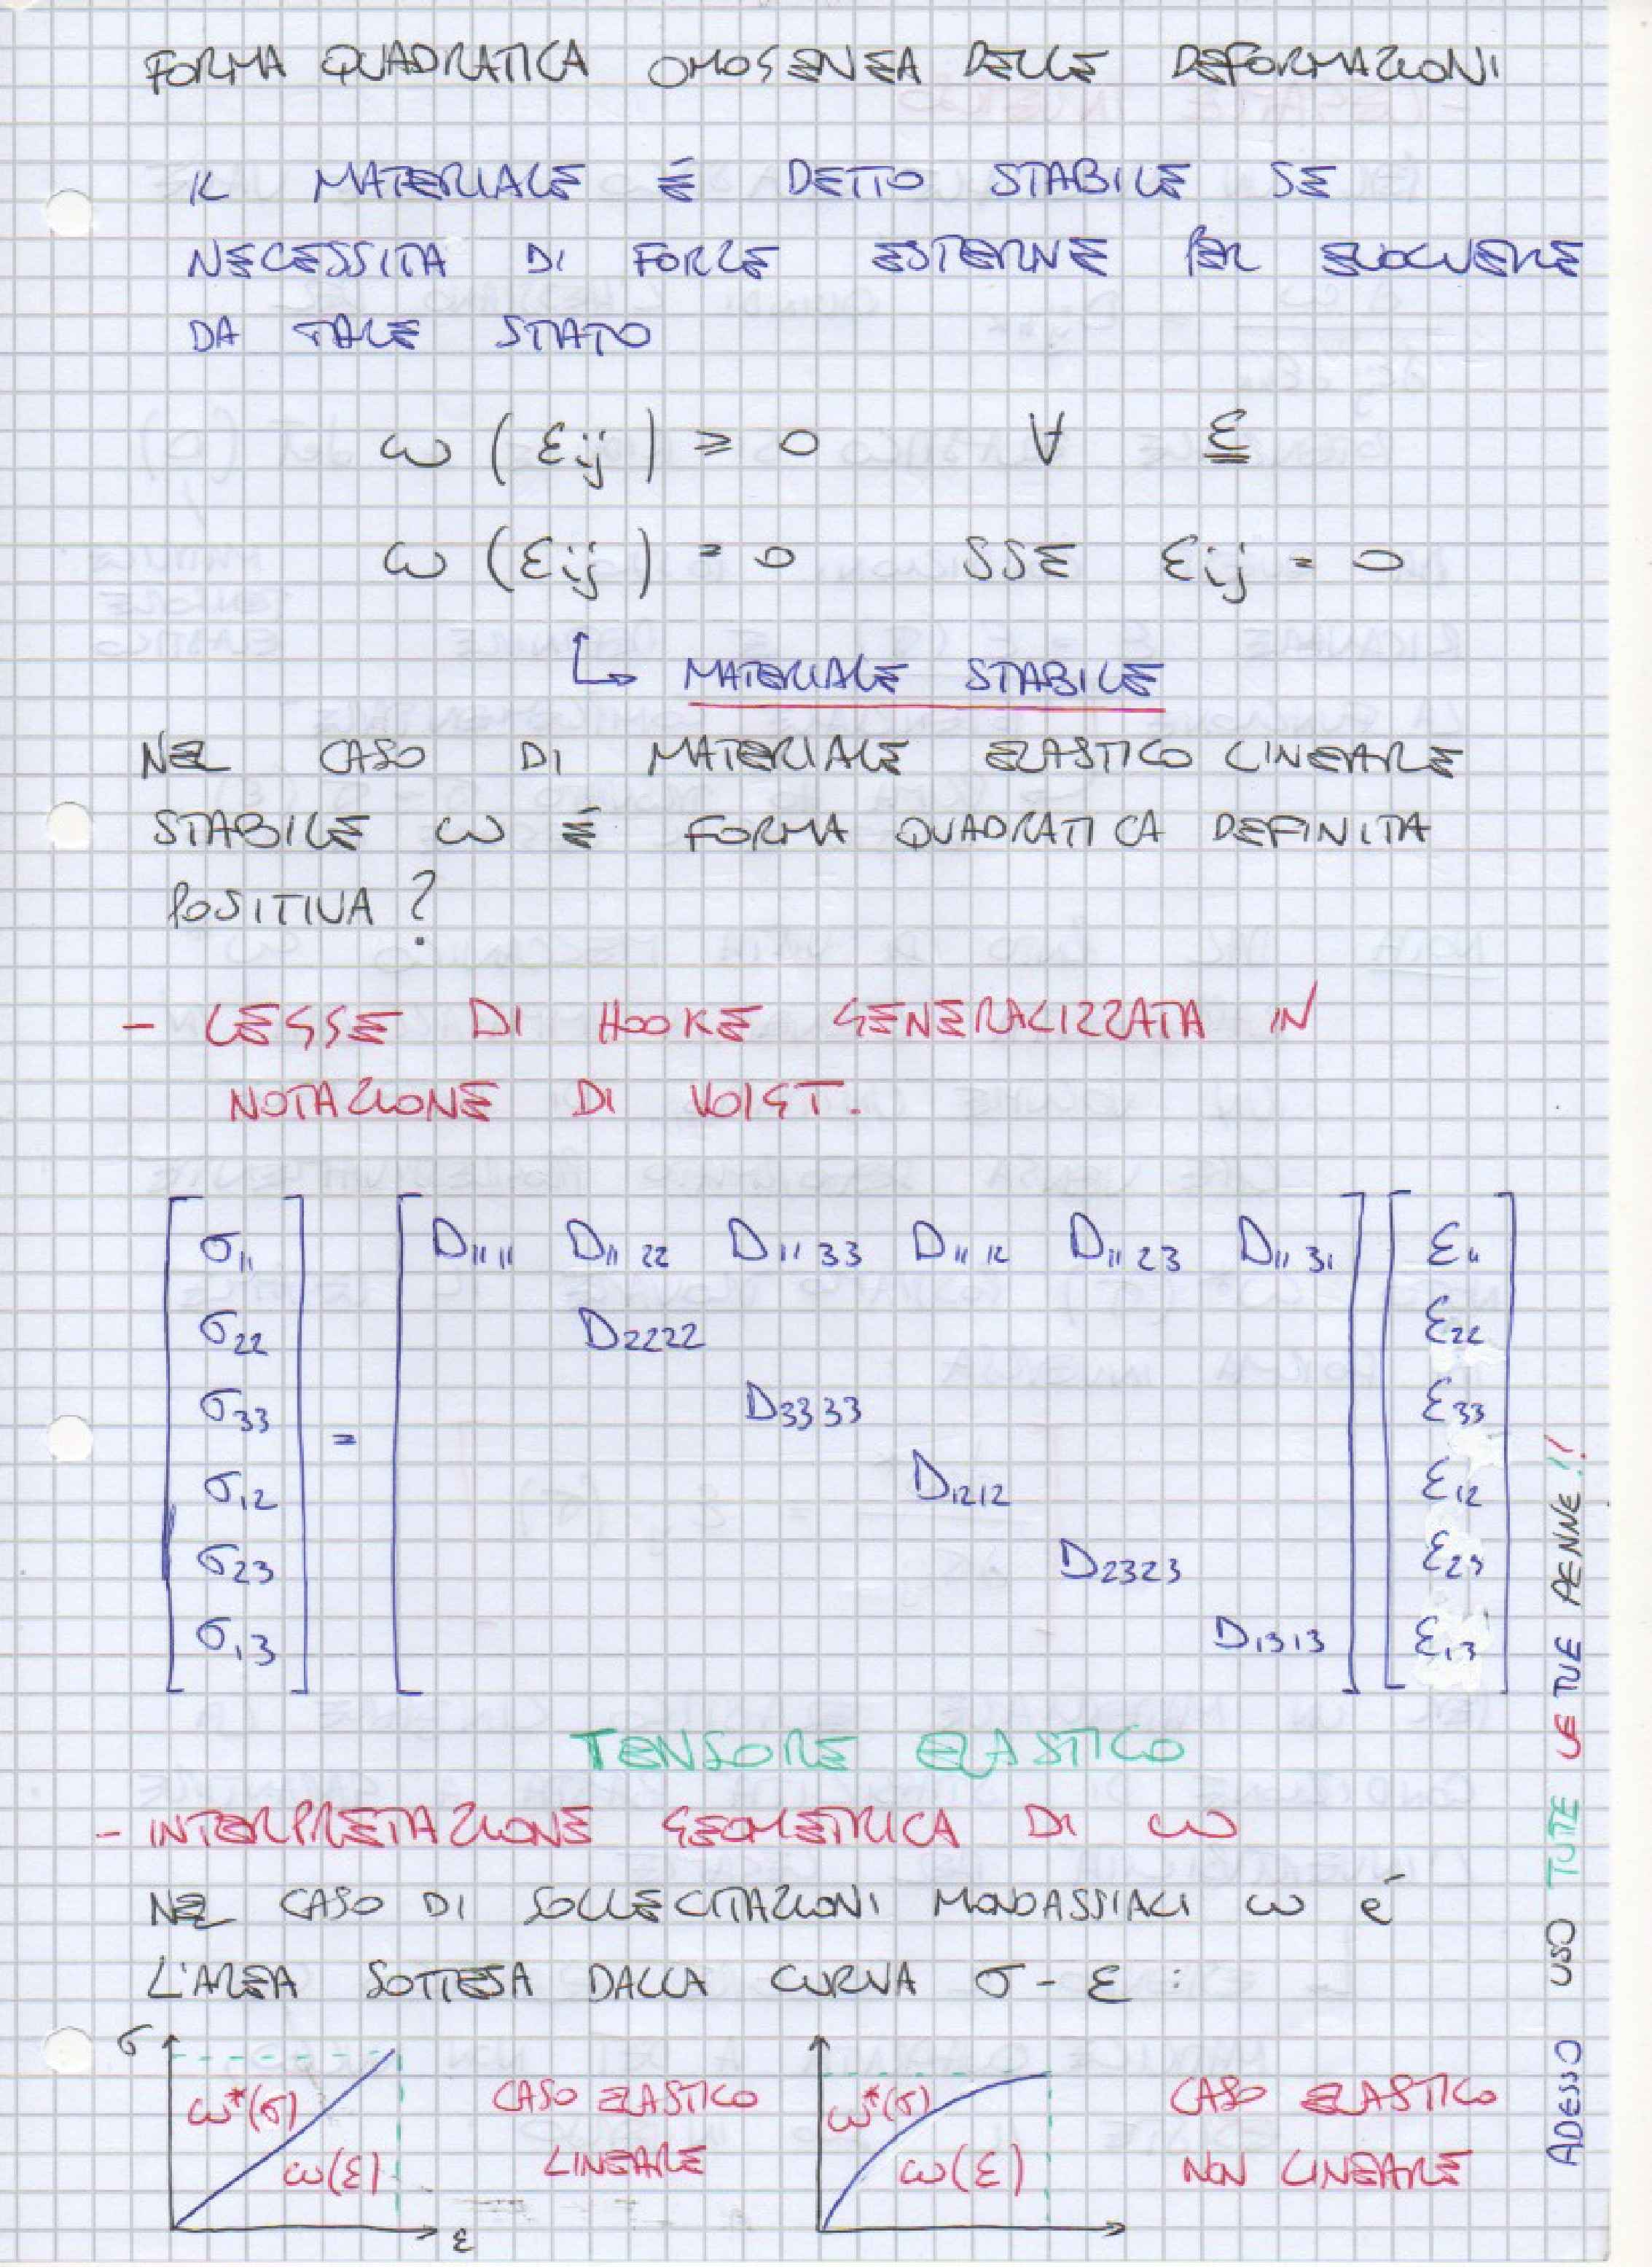 FORMA QUADRATICA OMOGENEA DELLE DEFORMAZIONI
IL MATERIALE É DETTO STABILE SE
NECESSITA DI FORZE ESTERNE PER EVOLVERE
DA TALE STATO
ω (εij) ≥ 0 ∀ ε
ω (εij) = 0 SSE εij = 0
↳ MATERIALE STABILE
NEL CASO DI MATERIALE ELASTICO LINEARE
STABILE ω É FORMA QUADRATICA DEFINITA
POSITIVA ?
- LEGGE DI HOOKE GENERALIZZATA IN
NOTAZIONE DI VOIGT.
σ11 D1111 D1122 D1133 D1112 D1123 D1131 ε11
σ22 D2222 ε22
σ33 D3333 ε33
=
σ12 D1212 ε12
σ23 D2323 ε23
σ13 D1313 ε13
TENSORE ELASTICO
- INTERPRETAZIONE GEOMETRICA DI ω
NEL CASO DI SOLLECITAZIONI MONOASSIALI ω é
L'AREA SOTTESA DALLA CURVA σ - ε :
σ
ω*(σ)
ω(ε)
ε
CASO ELASTICO
LINEARE
ω*(σ)
ω(ε)
CASO ELASTICO
NON LINEARE
ADESSO USO TUTTE LE TUE PENNE!!